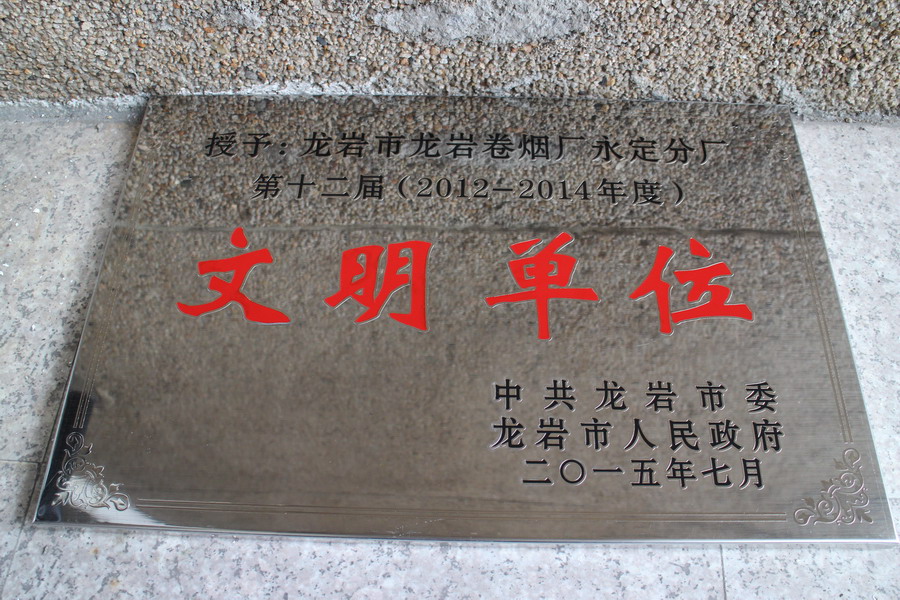 授予：龙岩市龙岩卷烟厂永定分厂
第十二届（2012-2014年度）
文明单位
中共龙岩市委
龙岩市人民政府
二〇一五年七月